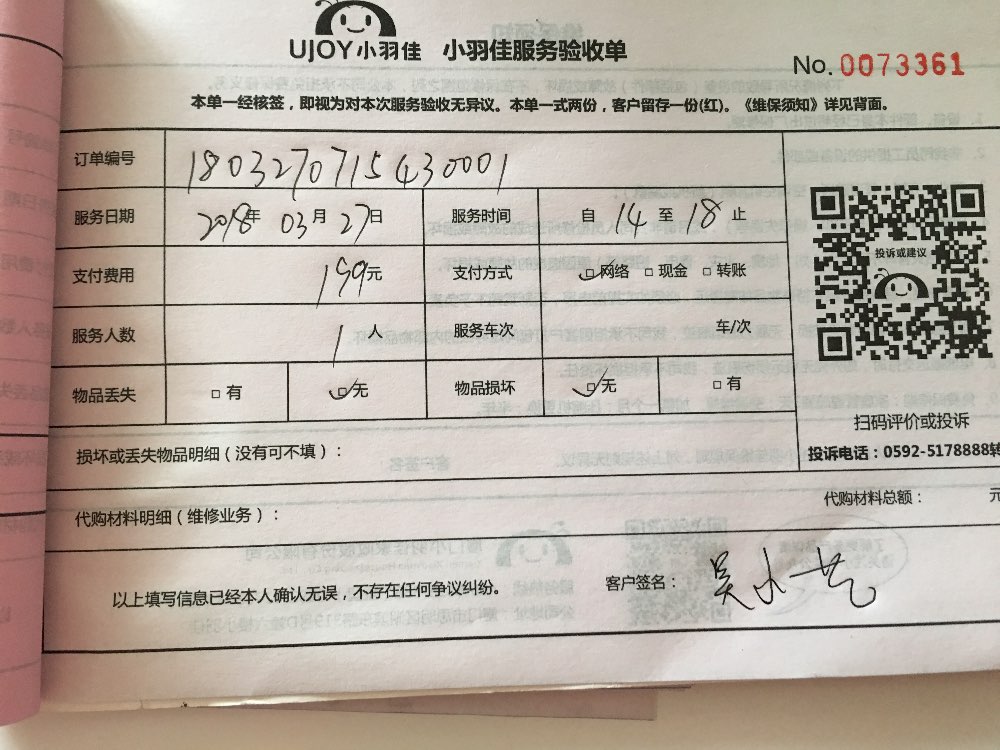 UJOY小羽佳 小羽佳服务验收单
No. 0073361
本单一经核签，即视为对本次服务验收无异议。本单一式两份，客户留存一份(红)。《维保须知》详见背面。
订单编号 180327071543 0001
服务日期 2018年 03月 27日 服务时间 自 14 至 18 止
支付费用 199元 支付方式 □网络 □现金 □转账
服务人数 1 人 服务车次 车/次
物品丢失 □有 □无 物品损坏 □无 □有
投诉或建议
扫码评价或投诉
投诉电话：0592-5178888转
损坏或丢失物品明细（没有可不填）：
代购材料明细（维修业务）： 代购材料总额： 元
以上填写信息已经本人确认无误，不存在任何争议纠纷。 客户签名：